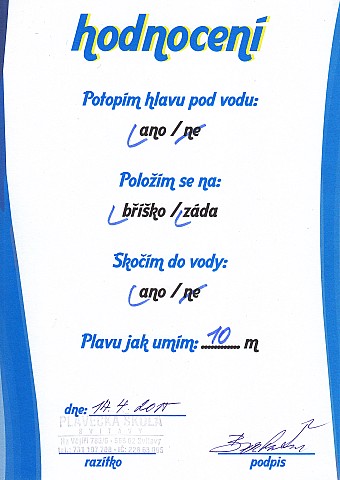 hodnocení
Potopím hlavu pod vodu:
ano / ne
Položím se na:
bříško / záda
Skočím do vody:
ano / ne
Plavu jak umím: 10 m
dne: 14. 4. 2011
PLAVECKÁ ŠKOLA
SVITAVY
razítko podpis